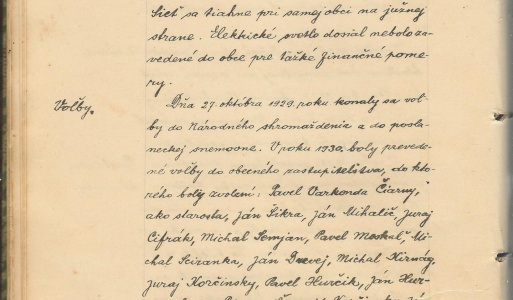 Sieť sa tiahne pri samej obci na južnej
strane. Elektrické svetlo dosiaľ nebolo za-
vedené do obce pre ťažké finančné pome-
ry.
Voľby.
Dňa 27. októbra 1929. roku konaly sa voľ-
by do Národného shromaždenia a do posla-
neckej snemovne. V roku 1930. boly prevede-
né voľby do obecného zastupiteľstva, do kto-
rého boly zvolení: Pavel Varkonda „Čiarny"
ako starosta, Ján Šikra, Ján Mihalič, Juraj
Cifrák, Michal Semjan, Pavel Moskaľ, Mi-
chal Sciranka, Ján Michal
Juraj Korčinsky, Pavel Hurčik, Ján Hur-